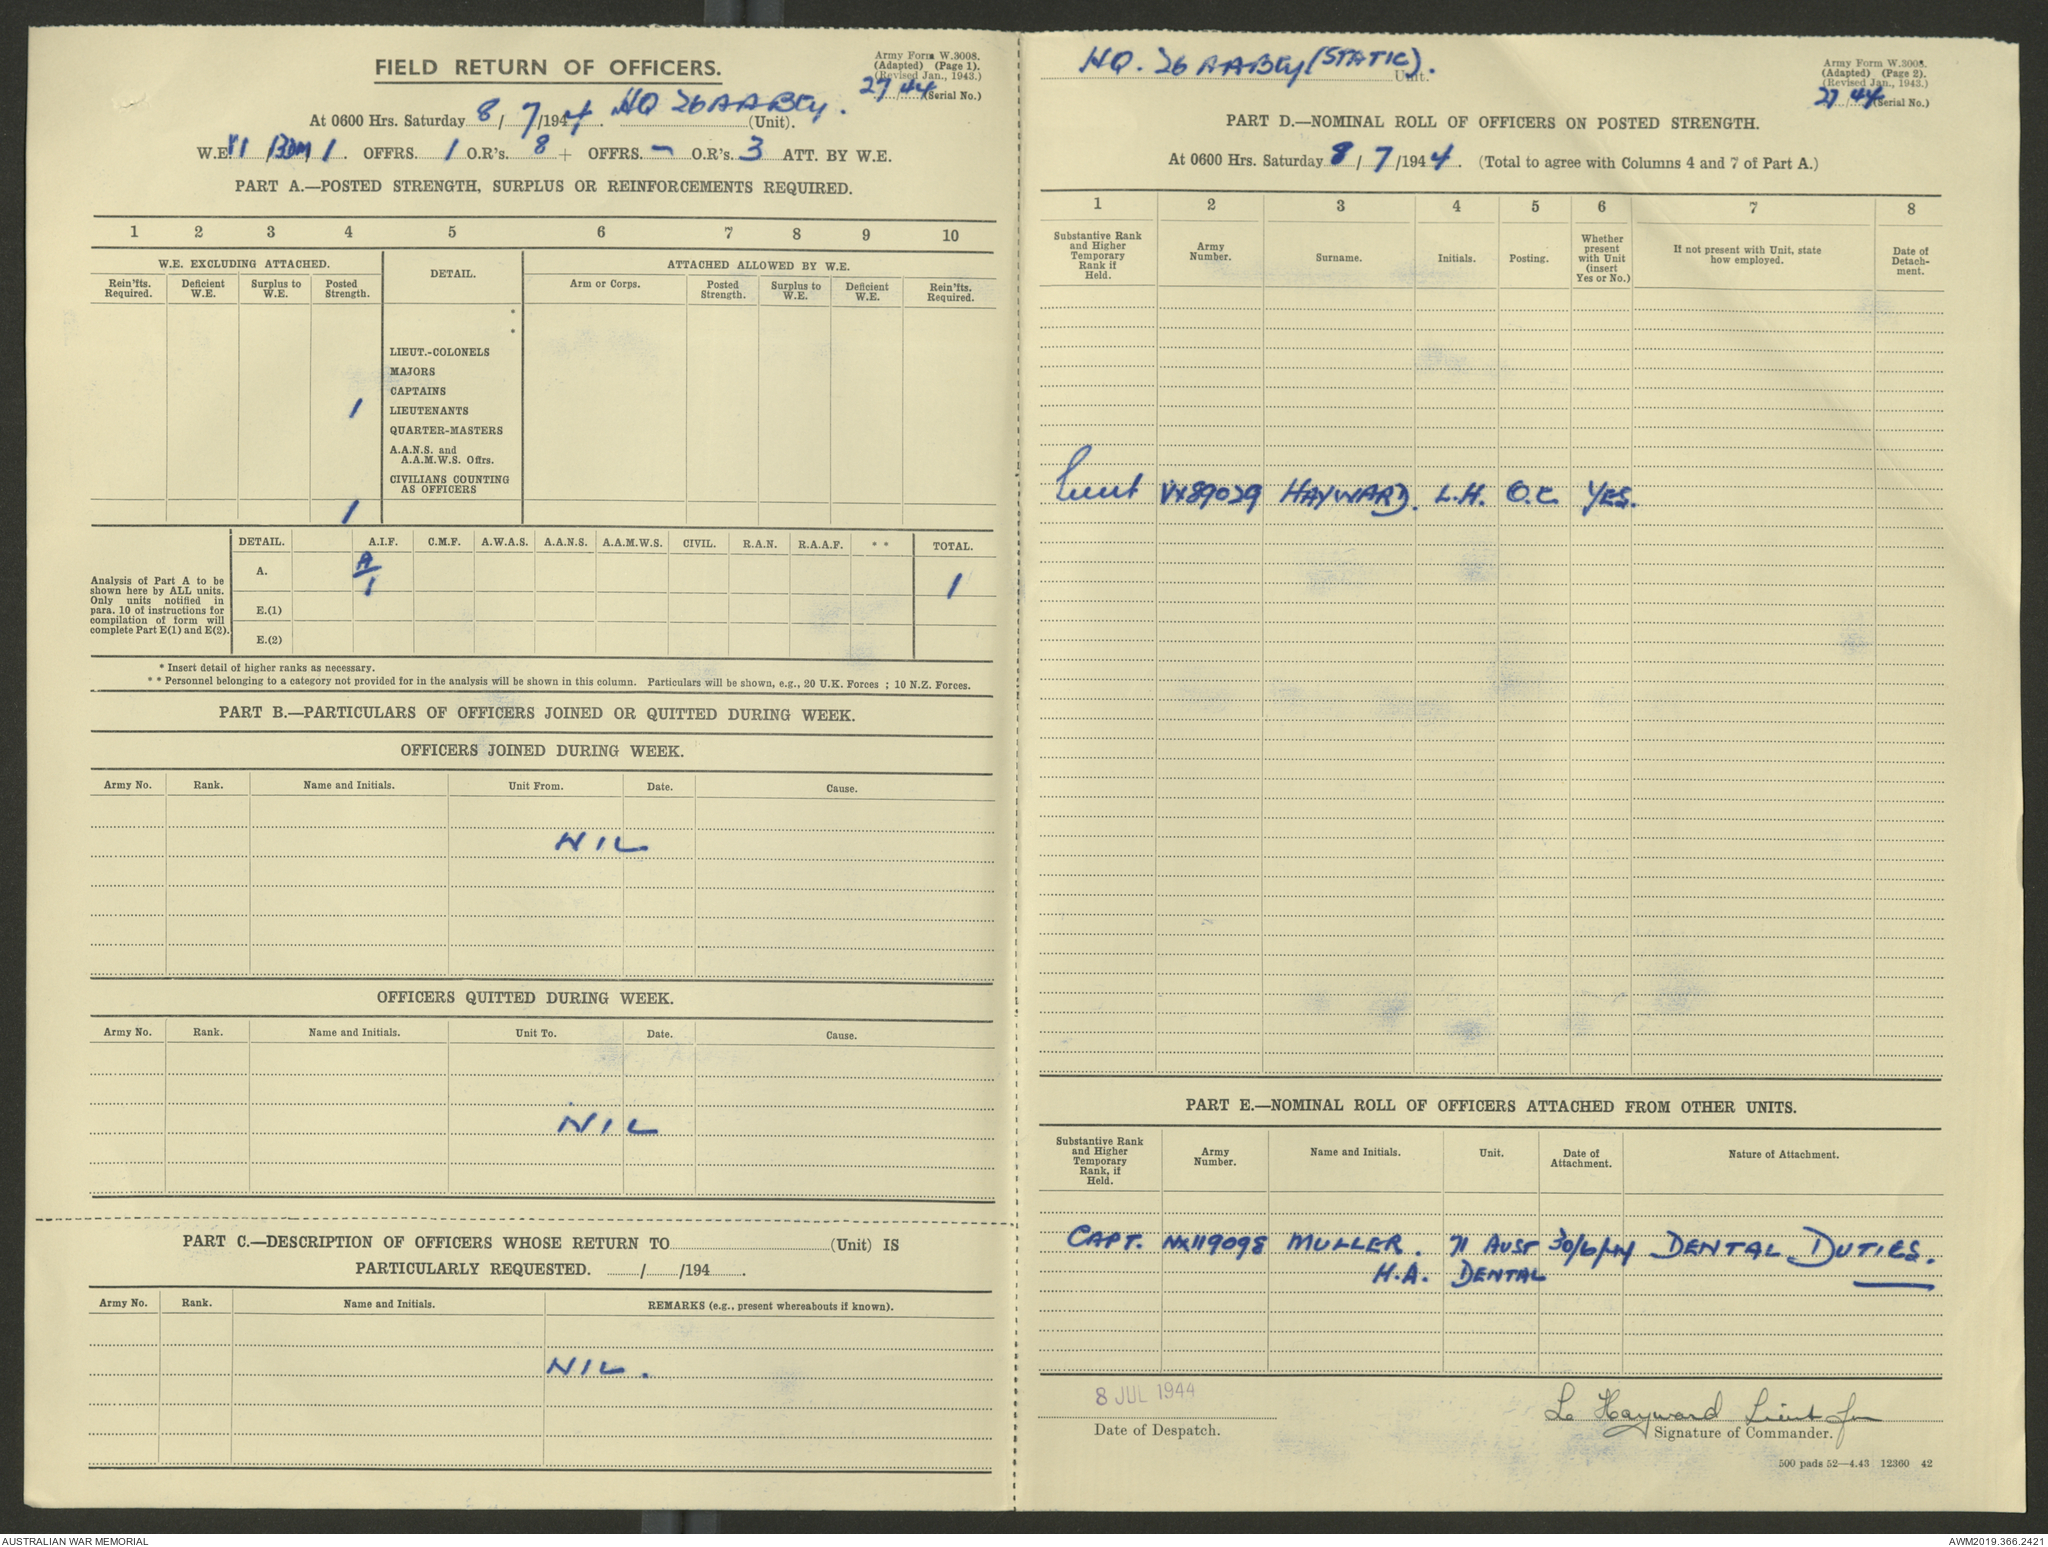 FIELD RETURN OF OFFICERS.
Army Form W.3008.
(Adapted) (Page 1).
(Revised Jan., 1943.)
27/44 (Serial No.)
At 0600 Hrs. Saturday 8/7/1944. HQ 26 AA BTY. (Unit).
W.E. VI /BDM/ 1. OFFRS. 1 O.R's. 8 + OFFRS. - O.R's. 3 ATT. BY W.E.
PART A.—POSTED STRENGTH, SURPLUS OR REINFORCEMENTS REQUIRED.
1 2 3 4 5 6 7 8 9 10
W.E. EXCLUDING ATTACHED. DETAIL. ATTACHED ALLOWED BY W.E.
Rein'fts. Required. Deficient W.E. Surplus to W.E. Posted Strength. Arm or Corps. Posted Strength. Surplus to W.E. Deficient W.E. Rein'fts. Required.
*
*
LIEUT.-COLONELS
MAJORS
CAPTAINS
1 LIEUTENANTS
QUARTER-MASTERS
A.A.N.S. and
A.A.M.W.S. Offrs.
CIVILIANS COUNTING
AS OFFICERS
1
Analysis of Part A to be
shown here by ALL units.
Only units notified in
para. 10 of instructions for
compilation of form will
complete Part E(1) and E(2).
DETAIL. A.I.F. C.M.F. A.W.A.S. A.A.N.S. A.A.M.W.S. CIVIL. R.A.N. R.A.A.F. * * TOTAL.
A. A/1 1
E.(1)
E.(2)
* Insert detail of higher ranks as necessary.
* * Personnel belonging to a category not provided for in the analysis will be shown in this column. Particulars will be shown, e.g., 20 U.K. Forces ; 10 N.Z. Forces.
PART B.—PARTICULARS OF OFFICERS JOINED OR QUITTED DURING WEEK.
OFFICERS JOINED DURING WEEK.
Army No. Rank. Name and Initials. Unit From. Date. Cause.
NIL
OFFICERS QUITTED DURING WEEK.
Army No. Rank. Name and Initials. Unit To. Date. Cause.
NIL
PART C.—DESCRIPTION OF OFFICERS WHOSE RETURN TO (Unit) IS
PARTICULARLY REQUESTED. / /194 .
Army No. Rank. Name and Initials. REMARKS (e.g., present whereabouts if known).
NIL.
HQ. 26 AA BTY (STATIC). Unit.
Army Form W.3008.
(Adapted) (Page 2).
(Revised Jan., 1943.)
27/44 (Serial No.)
PART D.—NOMINAL ROLL OF OFFICERS ON POSTED STRENGTH.
At 0600 Hrs. Saturday 8/7/1944. (Total to agree with Columns 4 and 7 of Part A.)
1 2 3 4 5 6 7 8
Substantive Rank and Higher Temporary Rank if Held. Army Number. Surname. Initials. Posting. Whether present with Unit (insert Yes or No.) If not present with Unit, state how employed. Date of Detach-ment.
Lieut VX89029 HAYWARD. L.H. O.C YES.
PART E.—NOMINAL ROLL OF OFFICERS ATTACHED FROM OTHER UNITS.
Substantive Rank and Higher Temporary Rank, if Held. Army Number. Name and Initials. Unit. Date of Attachment. Nature of Attachment.
CAPT. NX119098 MULLER. 71 AUST 30/6/44 DENTAL DUTIES.
H.A. DENTAL
8 JUL 1944
Date of Despatch.
L Hayward Lieut for
Signature of Commander.
500 pads 52—4.43 12360 42
AUSTRALIAN WAR MEMORIAL
AWM2019.366.2421